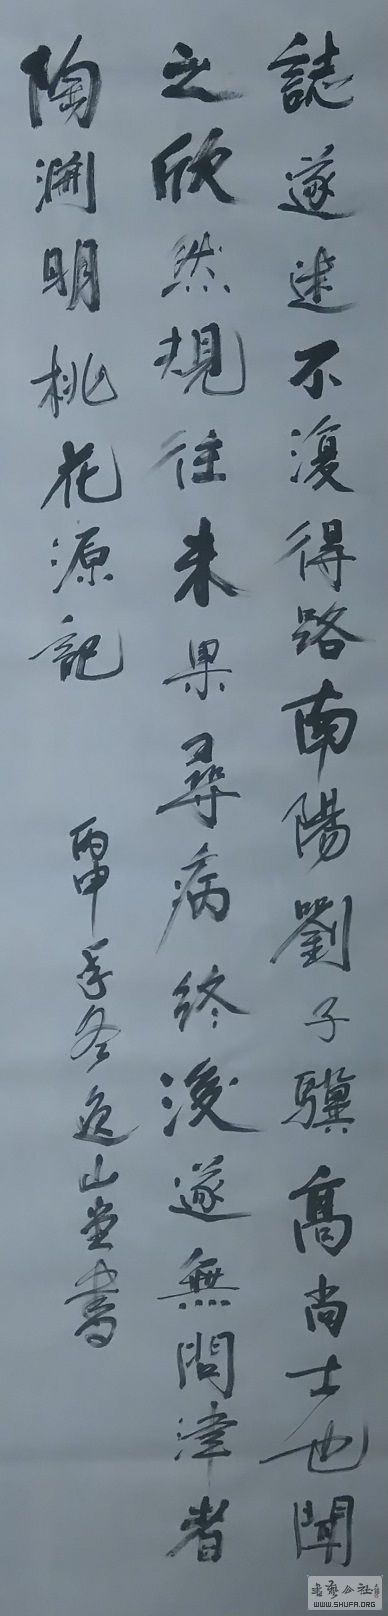 誌遂迷不復得路南陽劉子驥高尚士也聞
之欣然規往未果尋病終後遂無問津者
陶淵明桃花源記
丙申年冬逸山堂書
书艺公社
WWW.SHUFA.ORG